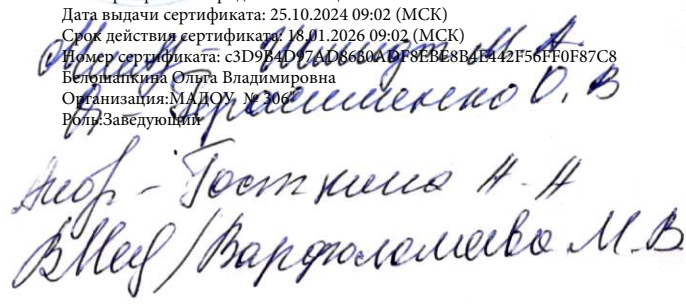 Дата выдачи сертификата: 25.10.2024 09:02 (МСК)
Срок действия сертификата: 18.01.2026 09:02 (МСК)
Номер сертификата: c3D9B4D97AD8680ADF8EBE8B4E142F56FF0F87C8
Белошапкина Ольга Владимировна
Организация:МАДОУ № 306
Роль:Заведующий
Герасименко О. В
Госткина Н. Н
Варфоломеева М. В